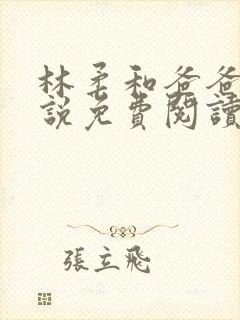 林柔和爸爸
說免費閱讀
張立飛